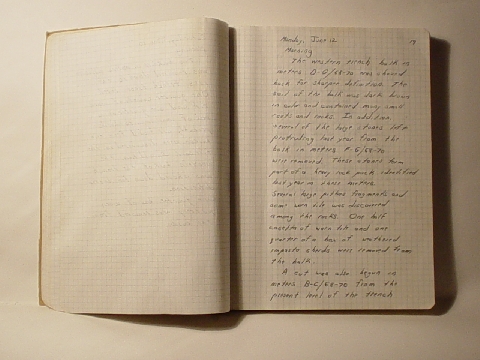 Monday, June 12
19
Morning
The western trench balk in
meters B-G/68-70 was shaved
back for sharper definition. The
soil of the balk was dark brown
in color and contained many small
roots and rocks. In addition,
several of the large stones left
protruding last year from the
balk in meters F-G/68-70
were removed. These stones form
part of a heavy rock pack identified
last year in these meters.
Several large pithos fragments and
some worn tile was discovered
among the rocks. One half
of worn tile and one
quarter of a box of weathered
impasto sherds were removed from
the balk.
A cut was also begun in
meters B-C/68-70 from the
present level of the trench